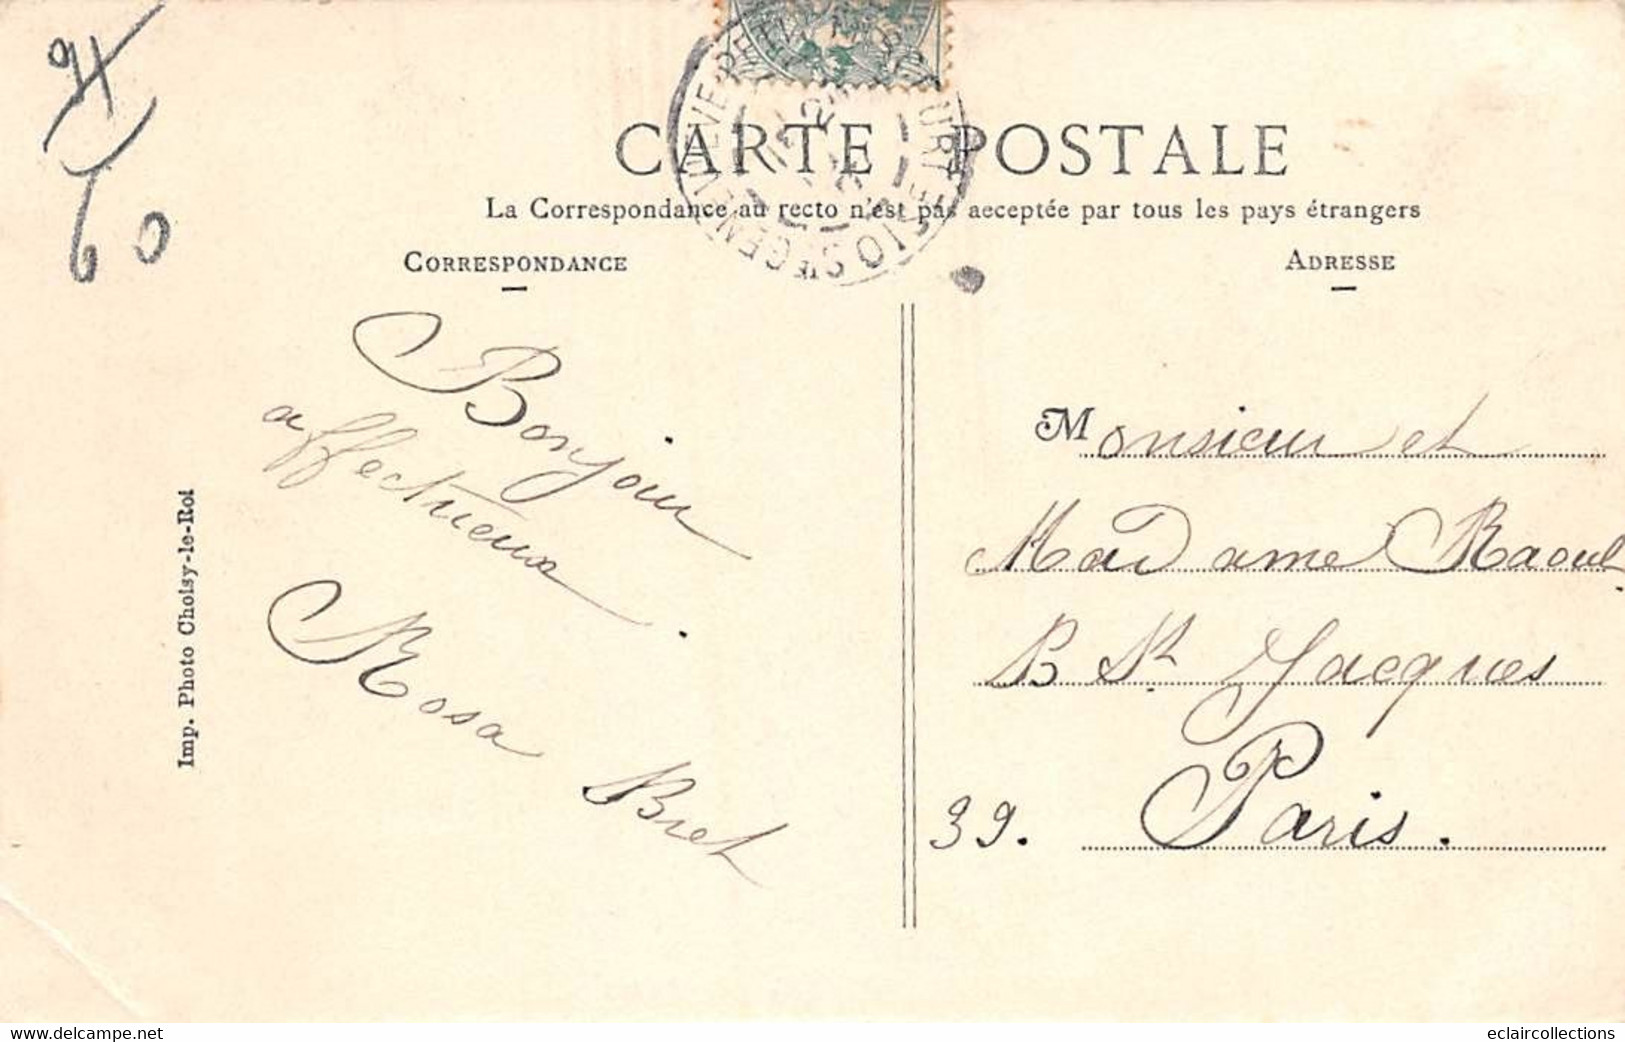 94
60
CARTE POSTALE
La Correspondance au recto n'est pas acceptée par tous les pays étrangers
CORRESPONDANCE
ADRESSE
Bonjour
affectueux
Rosa Bret
Imp. Photo Choisy-le-Roi
Monsieur et
Madame Raoul
B St Jacques
39. Paris.
delcampe.net
eclaircollections